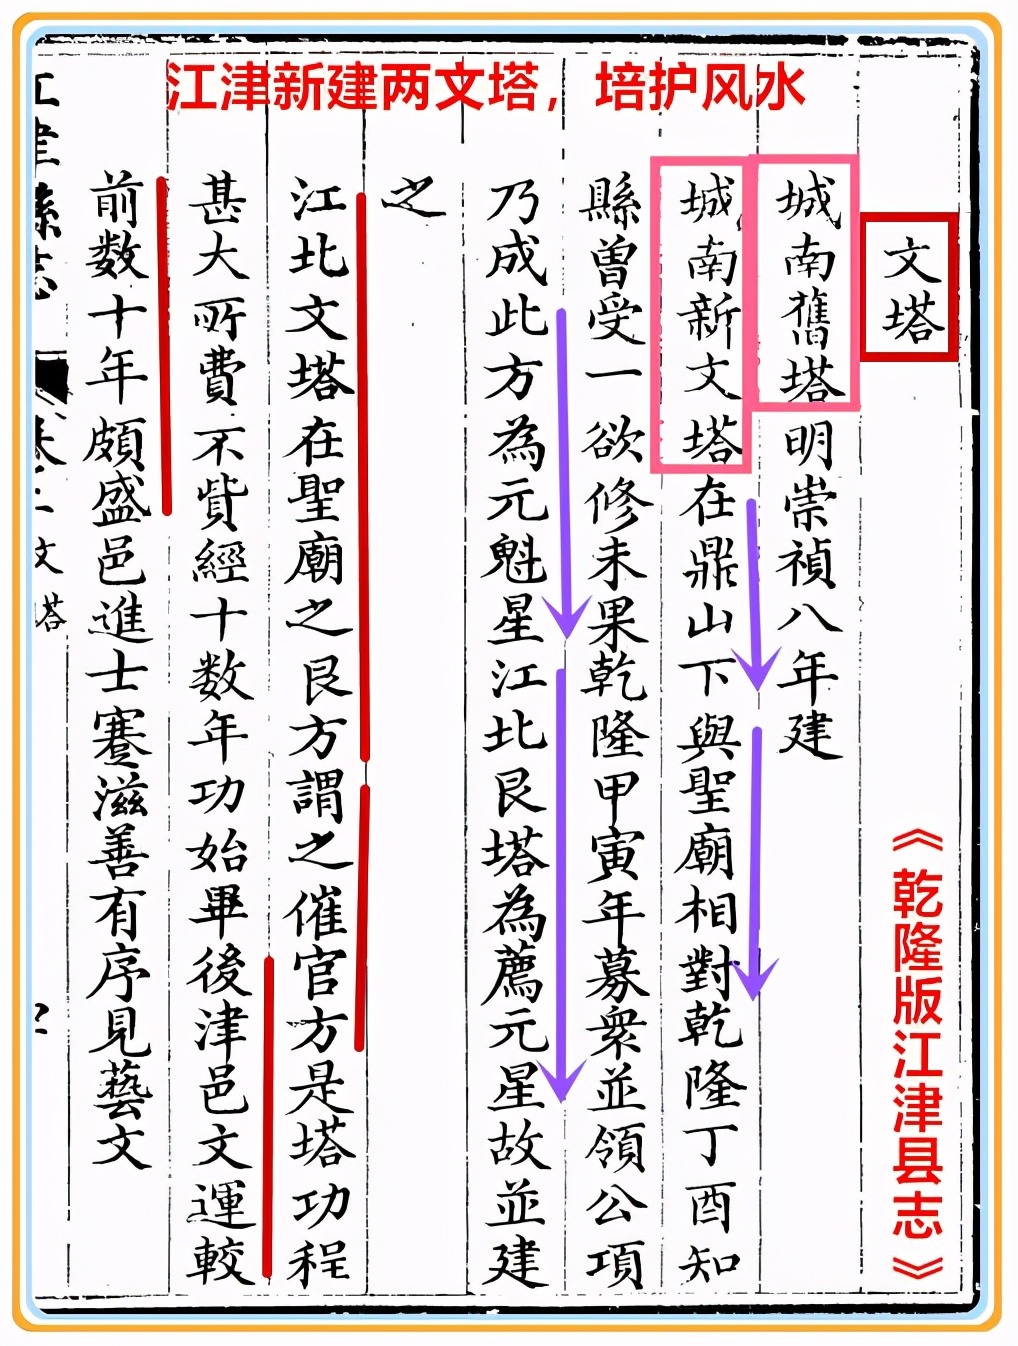 江津新建两文塔，培护风水
文塔
城南舊塔明崇禎八年建
城南新文塔在鼎山下與聖廟相對乾隆丁酉知
縣曾受一欲修未果乾隆甲寅年募衆並領公項
乃成此方為元魁星江北艮塔為薦元星故並建
之
江北文塔在聖廟之艮方謂之催官方是塔功程
甚大所費不貲經十数年功始畢後津邑文運較
前数十年頗盛邑進士蹇滋善有序見藝文
江津縣志
文塔
《乾隆版江津县志》